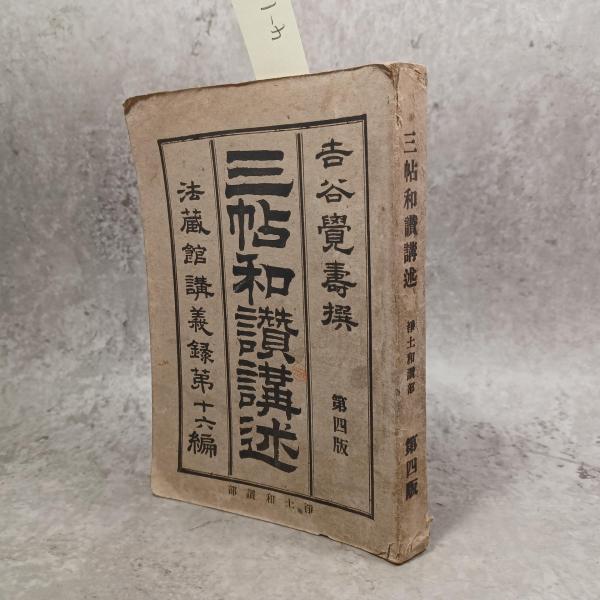 吉谷覺壽撰
第四版
三帖和讃講述
法蔵館講義録第十六編
浄土和讃部
三帖和讃講述
浄土和讃部
第四版